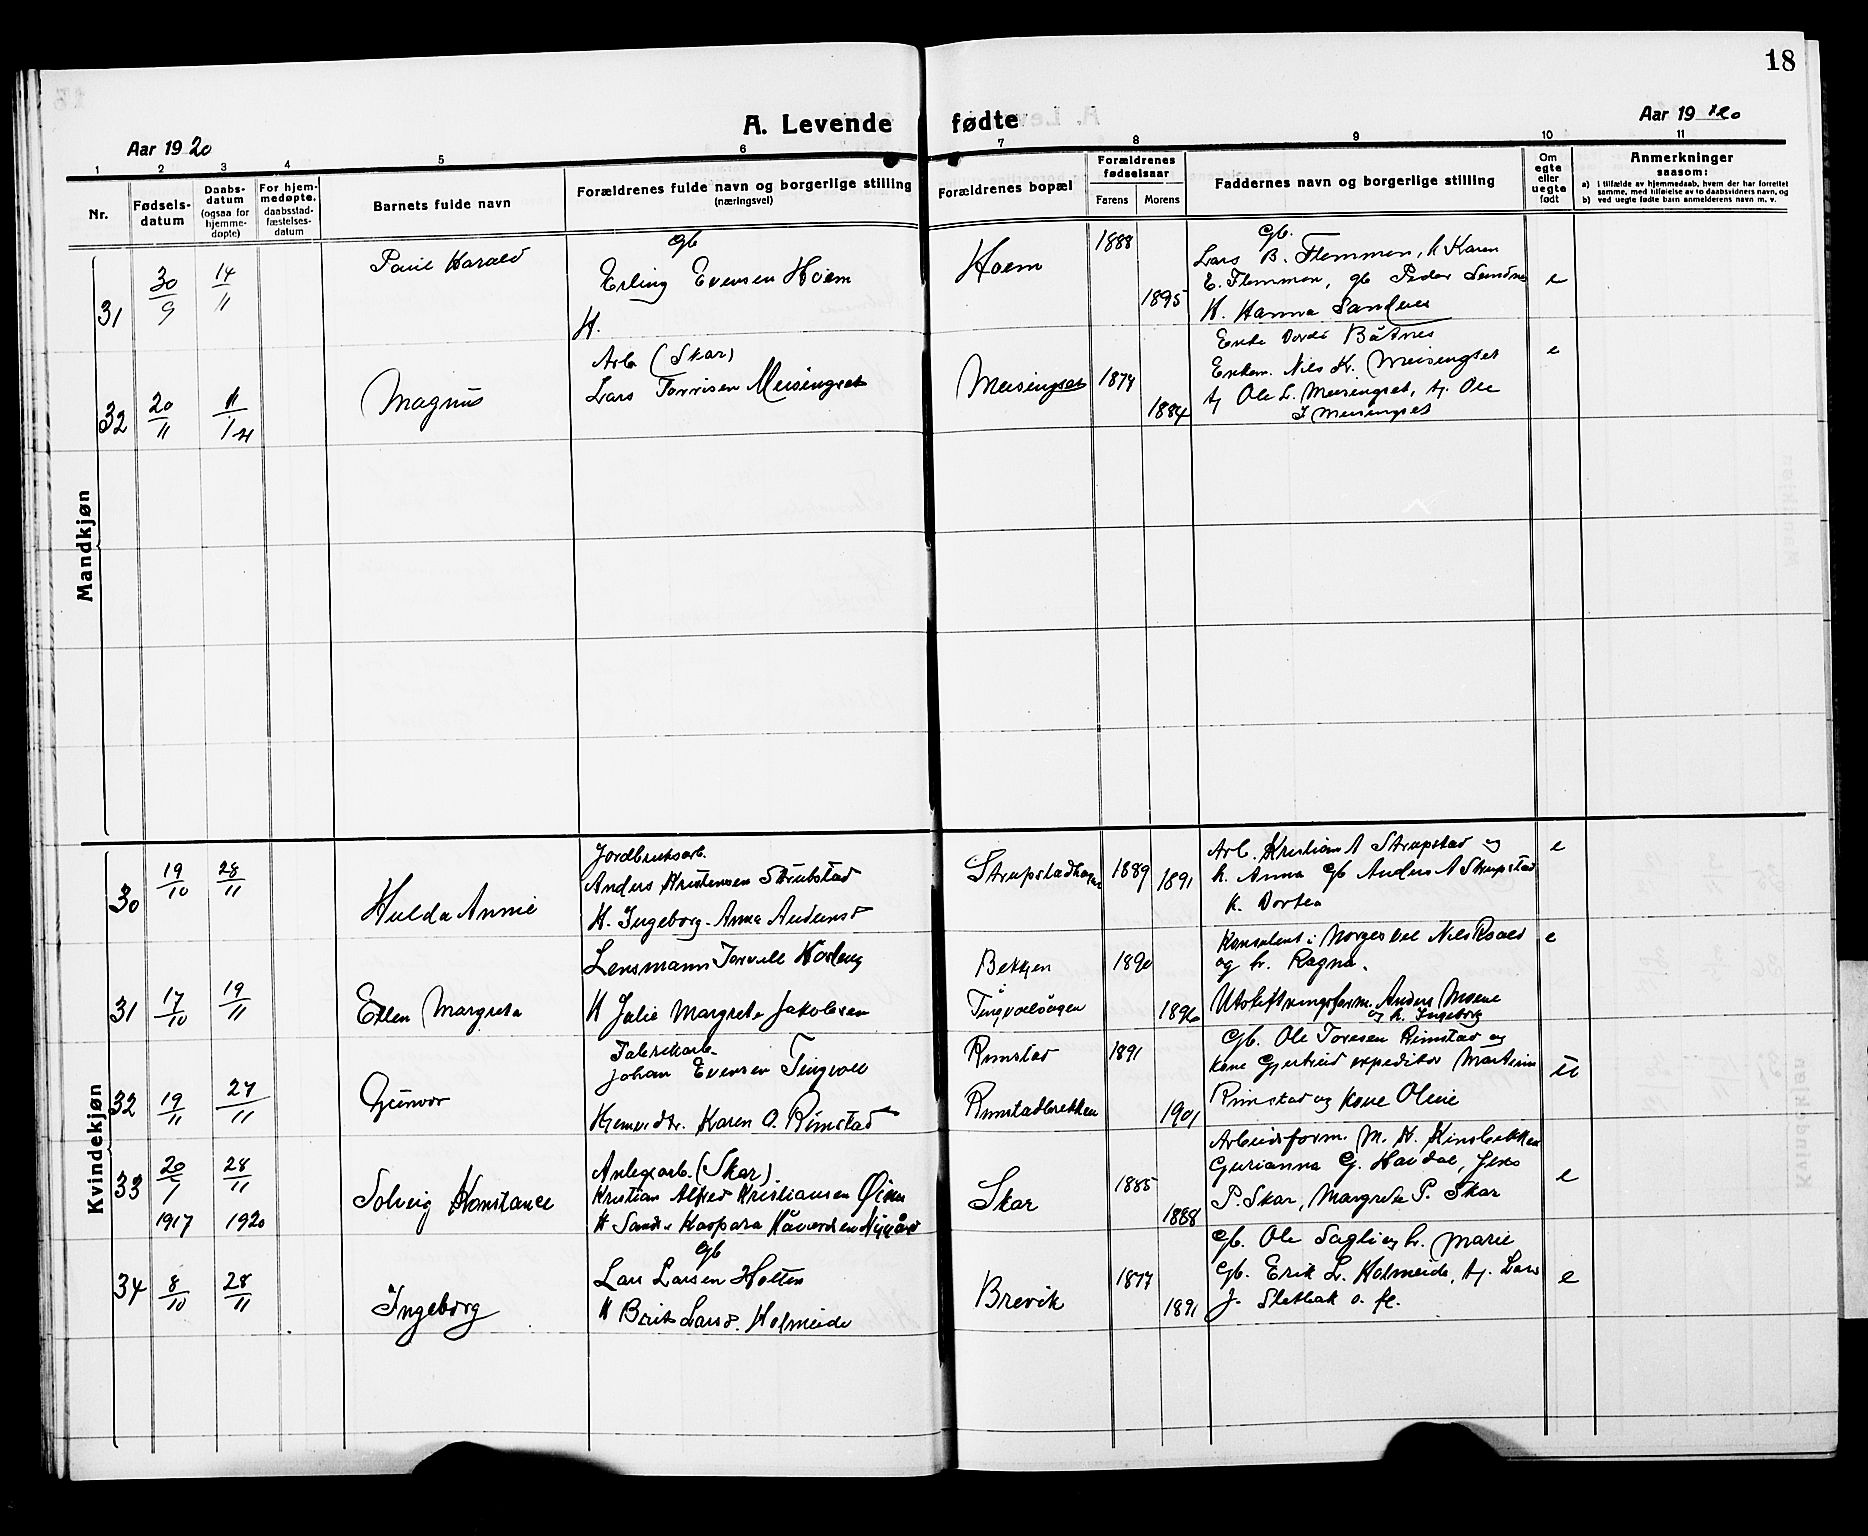 18
A. Levende fødte
Aar 1920
Aar 1920
1 2 3 4 5 6 7 8 9 10 11
Nr.
Fødsels-
datum
Daabs-
datum
(ogsaa for
hjemme-
døpte)
For hjem-
medøpte.
daabsstad-
fæstelses-
datum
Barnets fulde navn
Forældrenes fulde navn og borgerlige stilling
(næringsvei)
Forældrenes bopæl
Forældrenes
fødselsaar
Farens Morens
Faddernes navn og borgerlige stilling
Om
egte
eller
uegte
født
Anmerkninger
saasom:
a) i tilfælde av hjemmedaab, hvem der har forrettet
samme, med tilføielse av to daabsvidners navn, og
b) ved uegte fødte barn anmelderens navn m. v.
Mandkjøn
31 30/9 14/11
Paul Harald
Gb
Erling Evensen Hoem
H.
Hoem
1888
1895
Gb.
Lars B. Flemmen, k Karen
E. Flemmen, gb Peder Sandnes
K. Hanna Sandnes
e
32 20/11 11/1 21
Magnus
Arb (Skar)
Lars Meisingset
Meisingset
1879
1884
Enke Dordi Båtnes
Enkem. Nils K. Meisingset
tj Ole L. Meisingset, tj. Ole
I Meisingset
e
Kvindekjøn
30 19/10 28/11
Hulda Annie
Jordbruksarb.
Anders Kristensen Strubstad
H. Ingeborg Anna Andersd
1889
1891
Arb. Kristian A Strupstad og
k. Anna gb Anders A Strupstad
k. Dortea
e
31 17/10 19/11
Ellen Margrete
Lensmann
H Julie Margrete Jakobsen
Bekken
Tingvollvågen
1890
1896
Konsulent i Norges Vel Nils
og fr. Ragna.
Utskiftningsform. Anders Moene
og k. Ingeborg
e
32 19/11 27/11
Gunvor
Fabrikarb.
Johan Evensen Tingvoll
Hjemmedtr. Karen O. Rimstad
Rimstad
Rimstadbrekken
1891
1901
Gb. Ole Toresen Rimstad og
kone Gjertrud expeditør Martinus
Rimstad og kone Oline
u
33 20/7 28/11
1917 1920
Solveig Konstance
Anlegsarb. (Skar).
Kristian Alfred Kristiansen
Skar
1885
1888
Arbeidsform. M. K.
Gurianna G. Jens
P. Skar, Margrete P. Skar
e
34 8/10 28/11
Ingeborg
Gb
Lars Larsen Holten
H Brit Larsd. Holmeide
Brevik
1877
1891
Gb. Ole Sagli og k. Marie
Gb. Erik L. Holmeide, tj. Lars
J. o. fl.
e